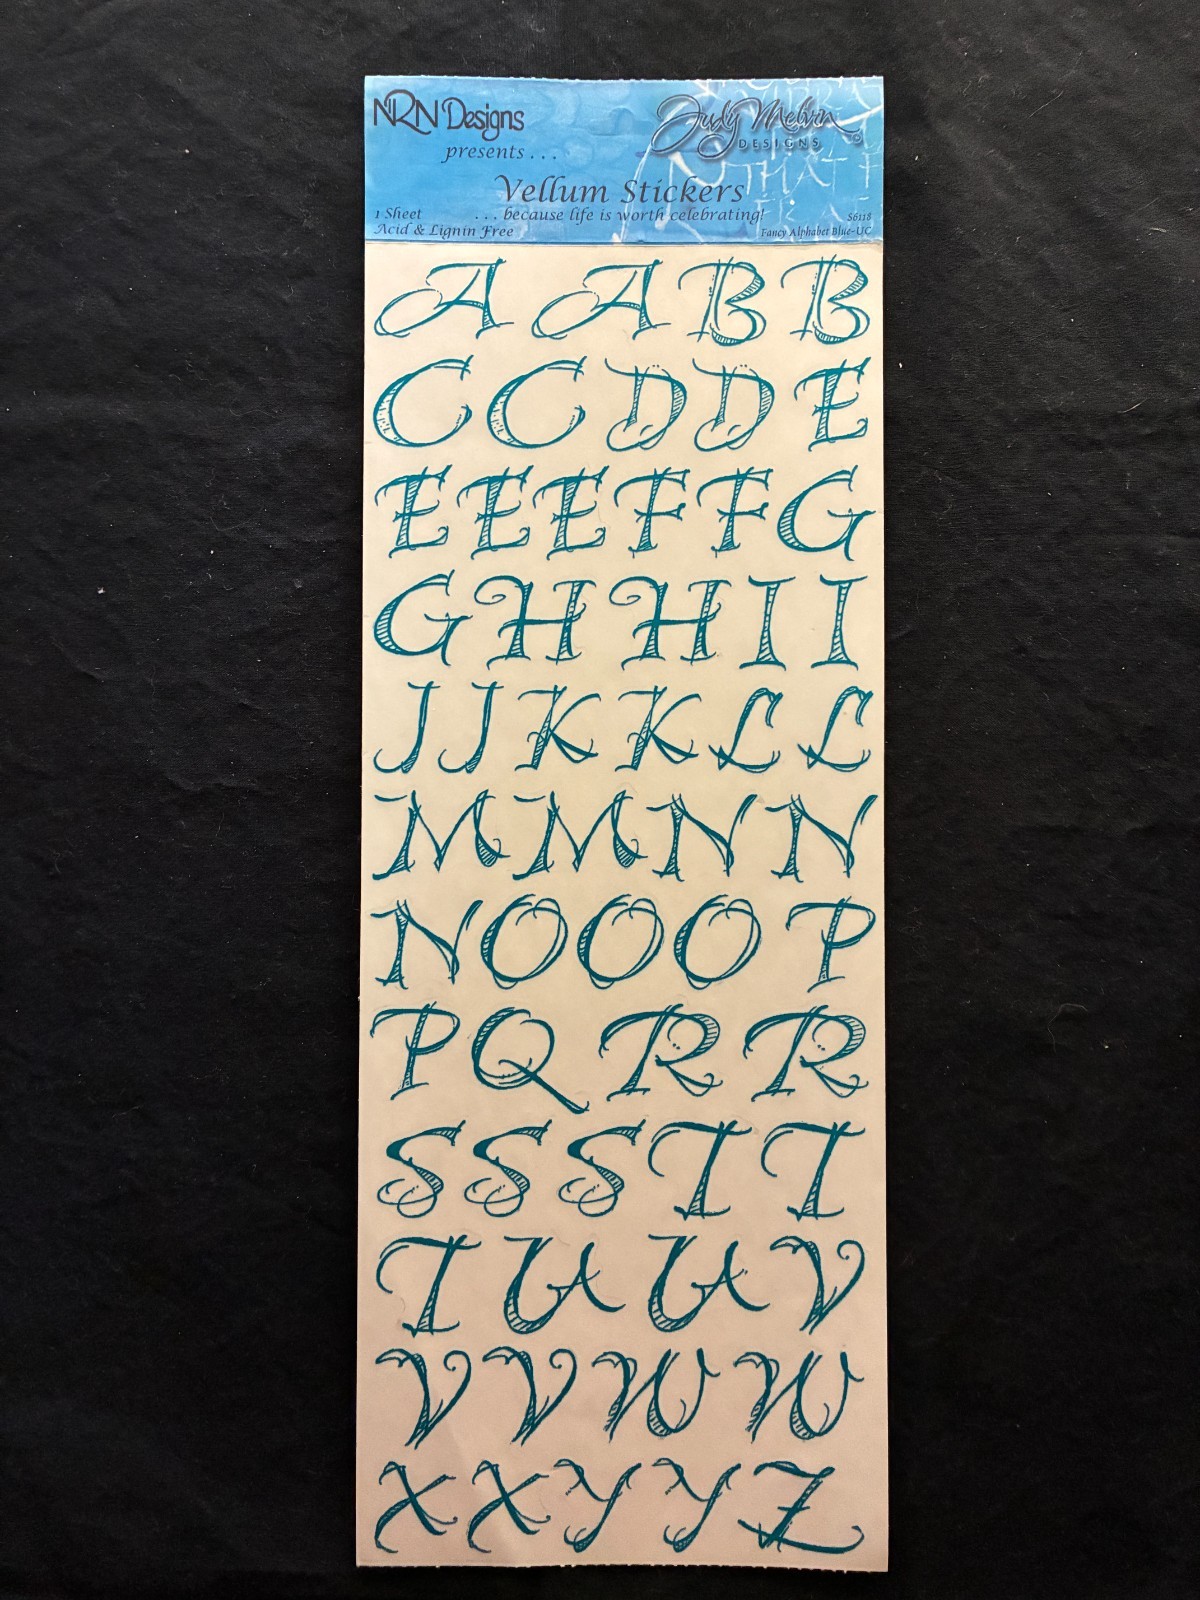 NRN Designs
presents . . .
Judy Melvin
DESIGNS
Vellum Stickers
1 Sheet
. . . because life is worth celebrating!
S6118
Acid & Lignin Free
Fancy Alphabet Blue-UC
A A B B
C C D D E
E E E F F G
G H H I I
J J K K L L
M M N N
N O O O P
P Q R R
S S S T T
T U U V
V V W W
X X Y Y Z